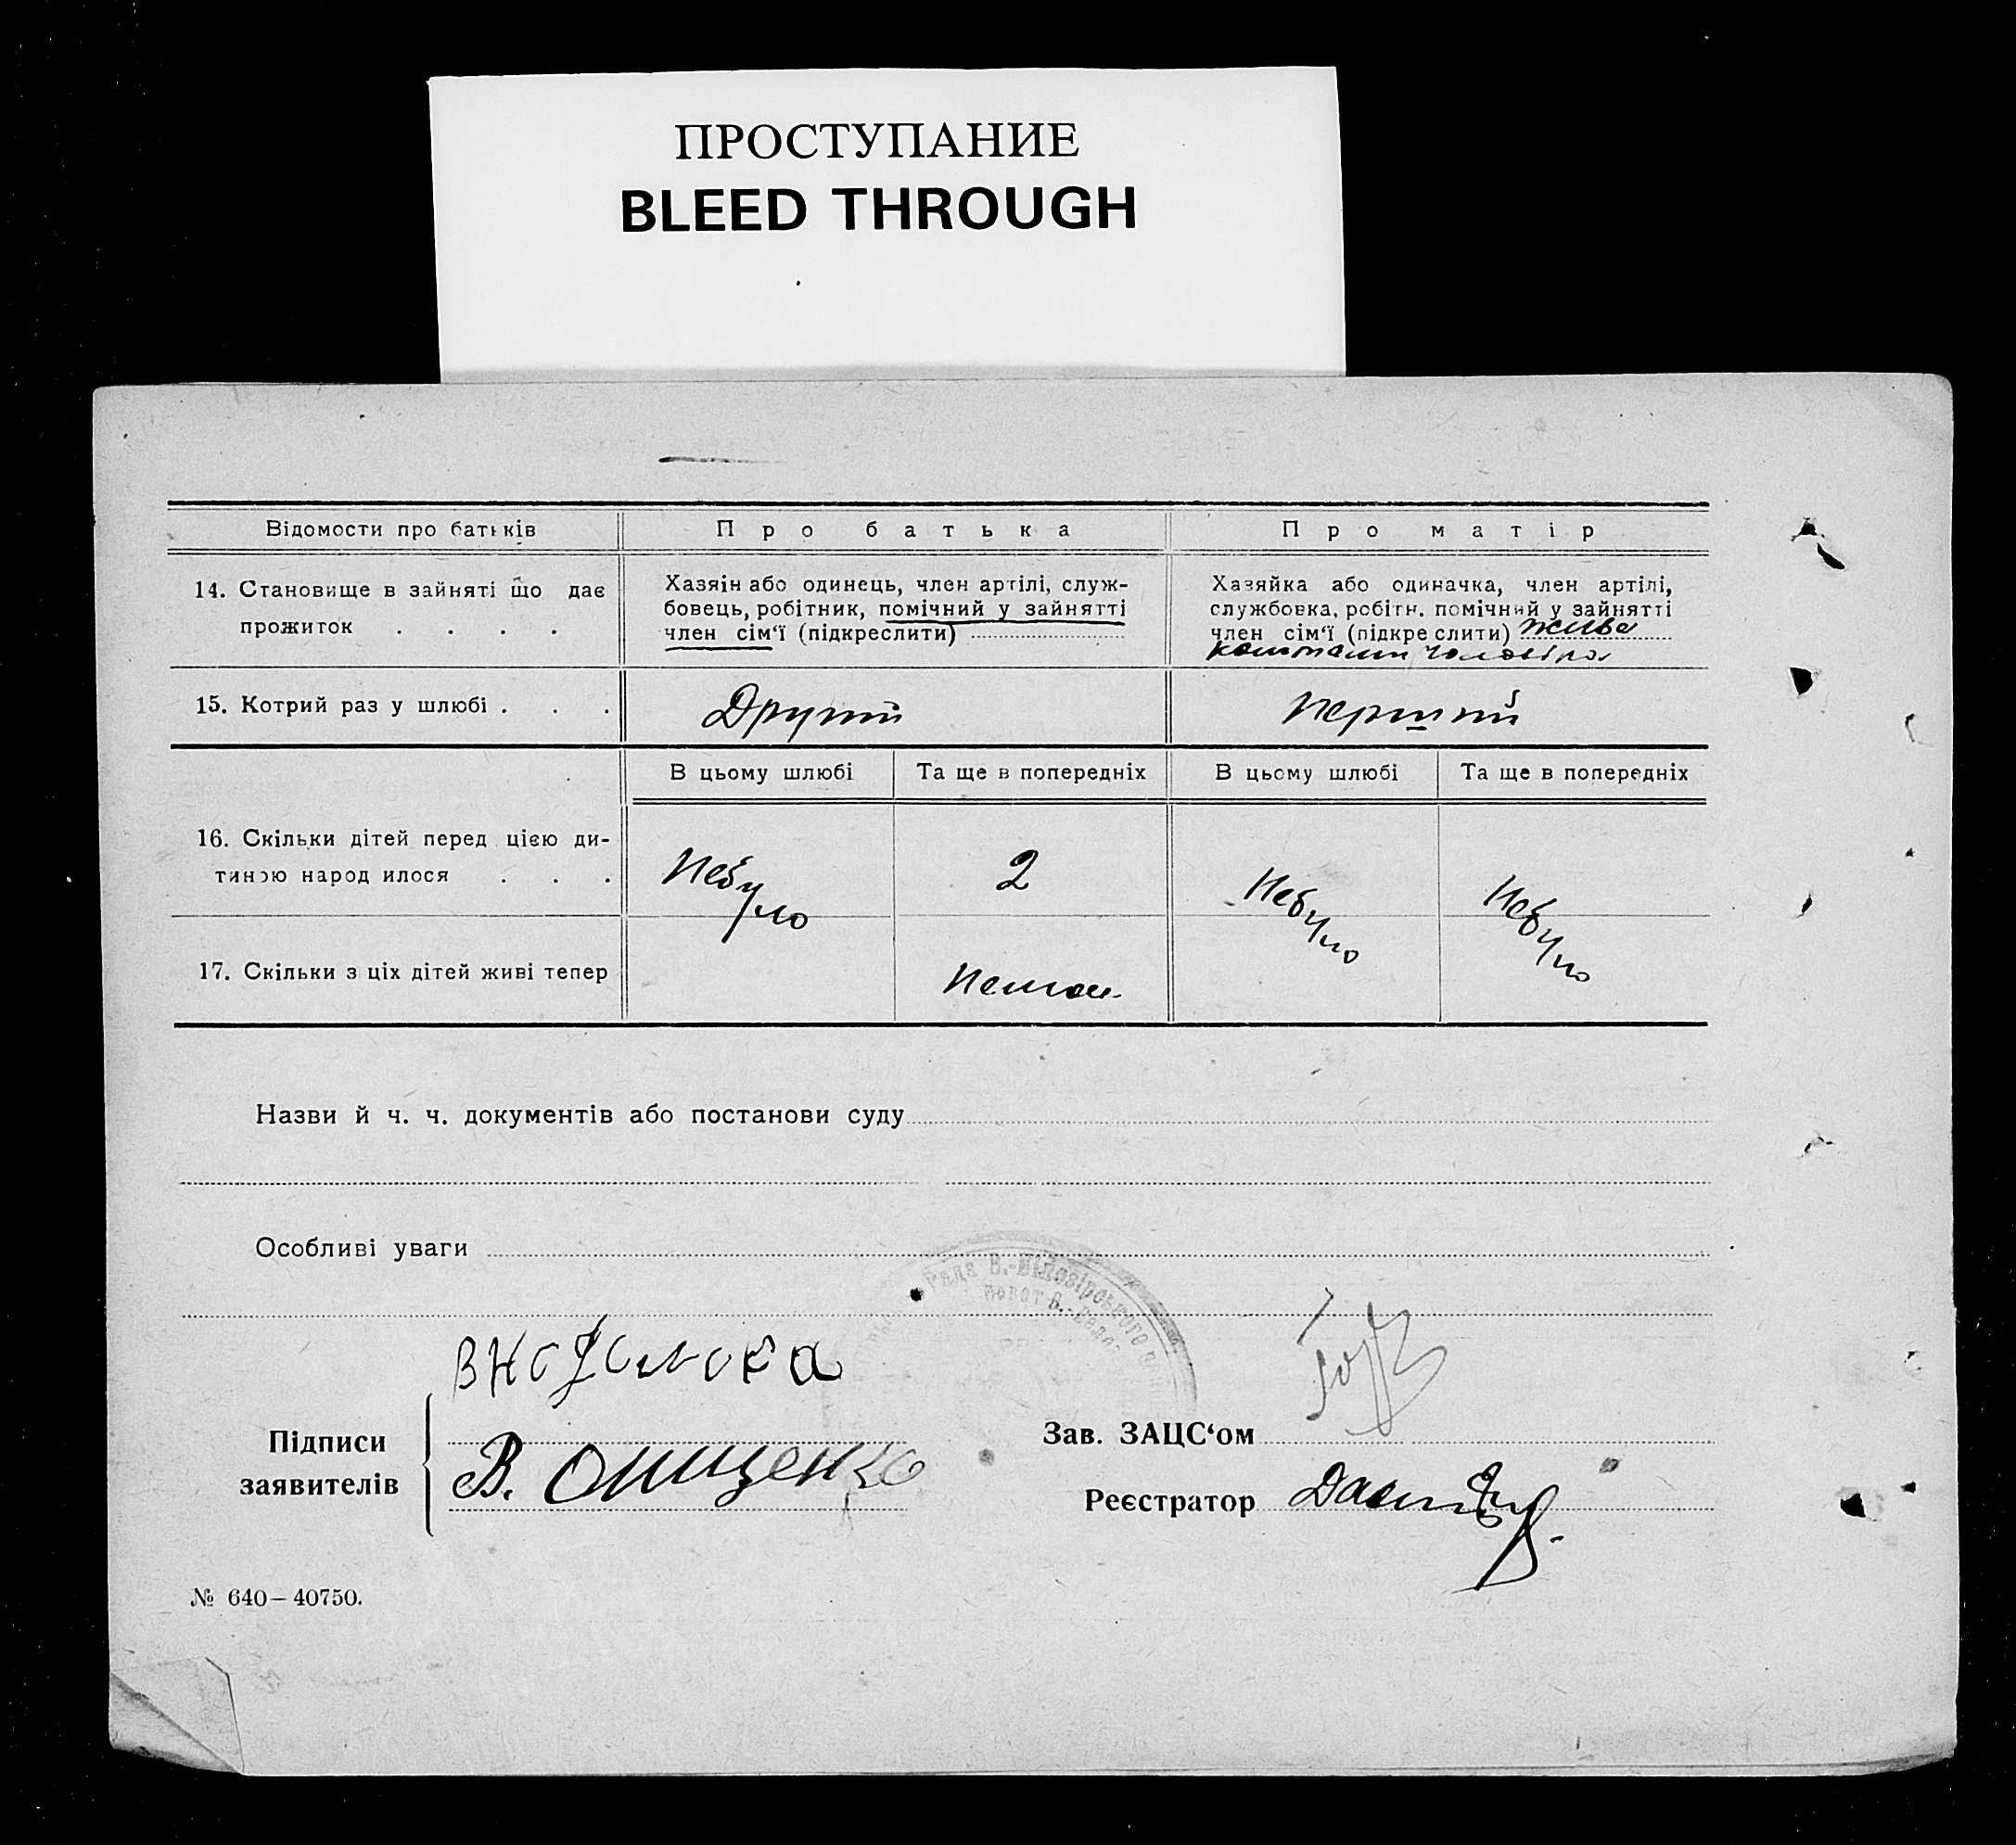 ПРОСТУПАНИЕ
BLEED THROUGH
Відомости про батьків
Про батька
Про матір
14. Становище в зайняті що дає
прожиток . . . .
Хазяін або одинець, член артілі, служ-
бовець, робітник, помічний у зайнятті
член сім'ї (підкреслити)
Хазяйка або одиначка, член артілі,
службовка, робітн. помічний у зайнятті
член сім'ї (підкреслити) живе
коштами чоловіка
15. Котрий раз у шлюбі . . .
Другий
Перший
В цьому шлюбі
Та ще в попередніх
В цьому шлюбі
Та ще в попередніх
16. Скільки дітей перед цією ди-
тиною народилося . . .
Небуло
2
Небуло
Небуло
17. Скільки з ціх дітей живі тепер
Немає
Назви й ч. ч. документів або постанови суду
Особливі уваги
Рада В.-Білозірського
Підписи
заявителів
В. Онищенко
Зав. ЗАЦС'ом
Реєстратор
№ 640–40750.